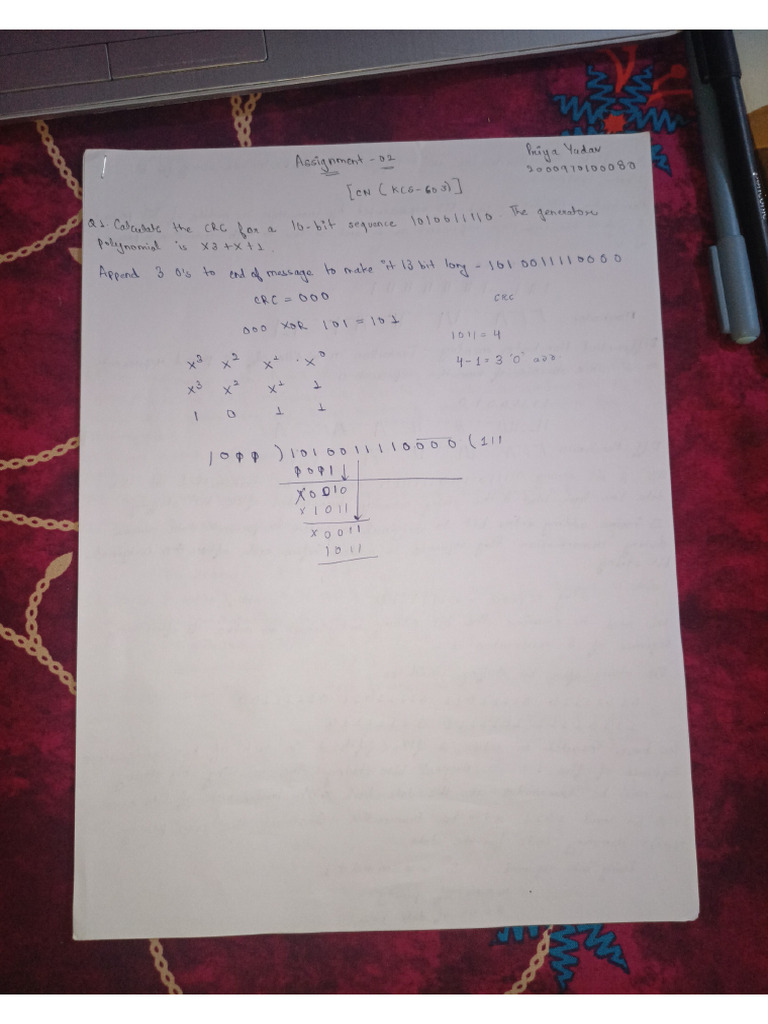 Assignment-02
Priya Yadav
2000970100080
[CN (KCS-603)]
Q1. Calculate the CRC for a 10-bit sequence 1010011110. The generator
polynomial is x3+x+1.
Append 3 0's to end of message to make it 13 bit long - 1010011110000
CRC = 000
CRC
000 XOR 101 = 101
1011 = 4
4-1 = 3 '0'
x³ x² x¹ x⁰
x³ x² x¹ 1
1 0 1 1
) 1010011110000 ( 111
x0010
x1011
x0011
1011